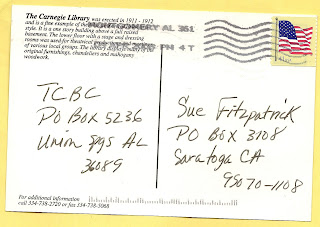 The Carnegie Library was erected in 1911 - 1912
and is a fine example of the
style. It is a one story building above a full raised
basement. The lower floor with a stage and dressing
rooms was used for theatrical
of various local groups. The library displays many of its
original furnishings, chandeliers and mahogany
woodwork.
MONTGOMERY AL 361
PM 4 T
TCBC
PO Box 5236
Union Spgs AL
36089
Sue Fitzpatrick
PO BOX 3108
Saratoga CA
95070-1108
For additional information
call 334-738-2720 or fax 334-738-5068